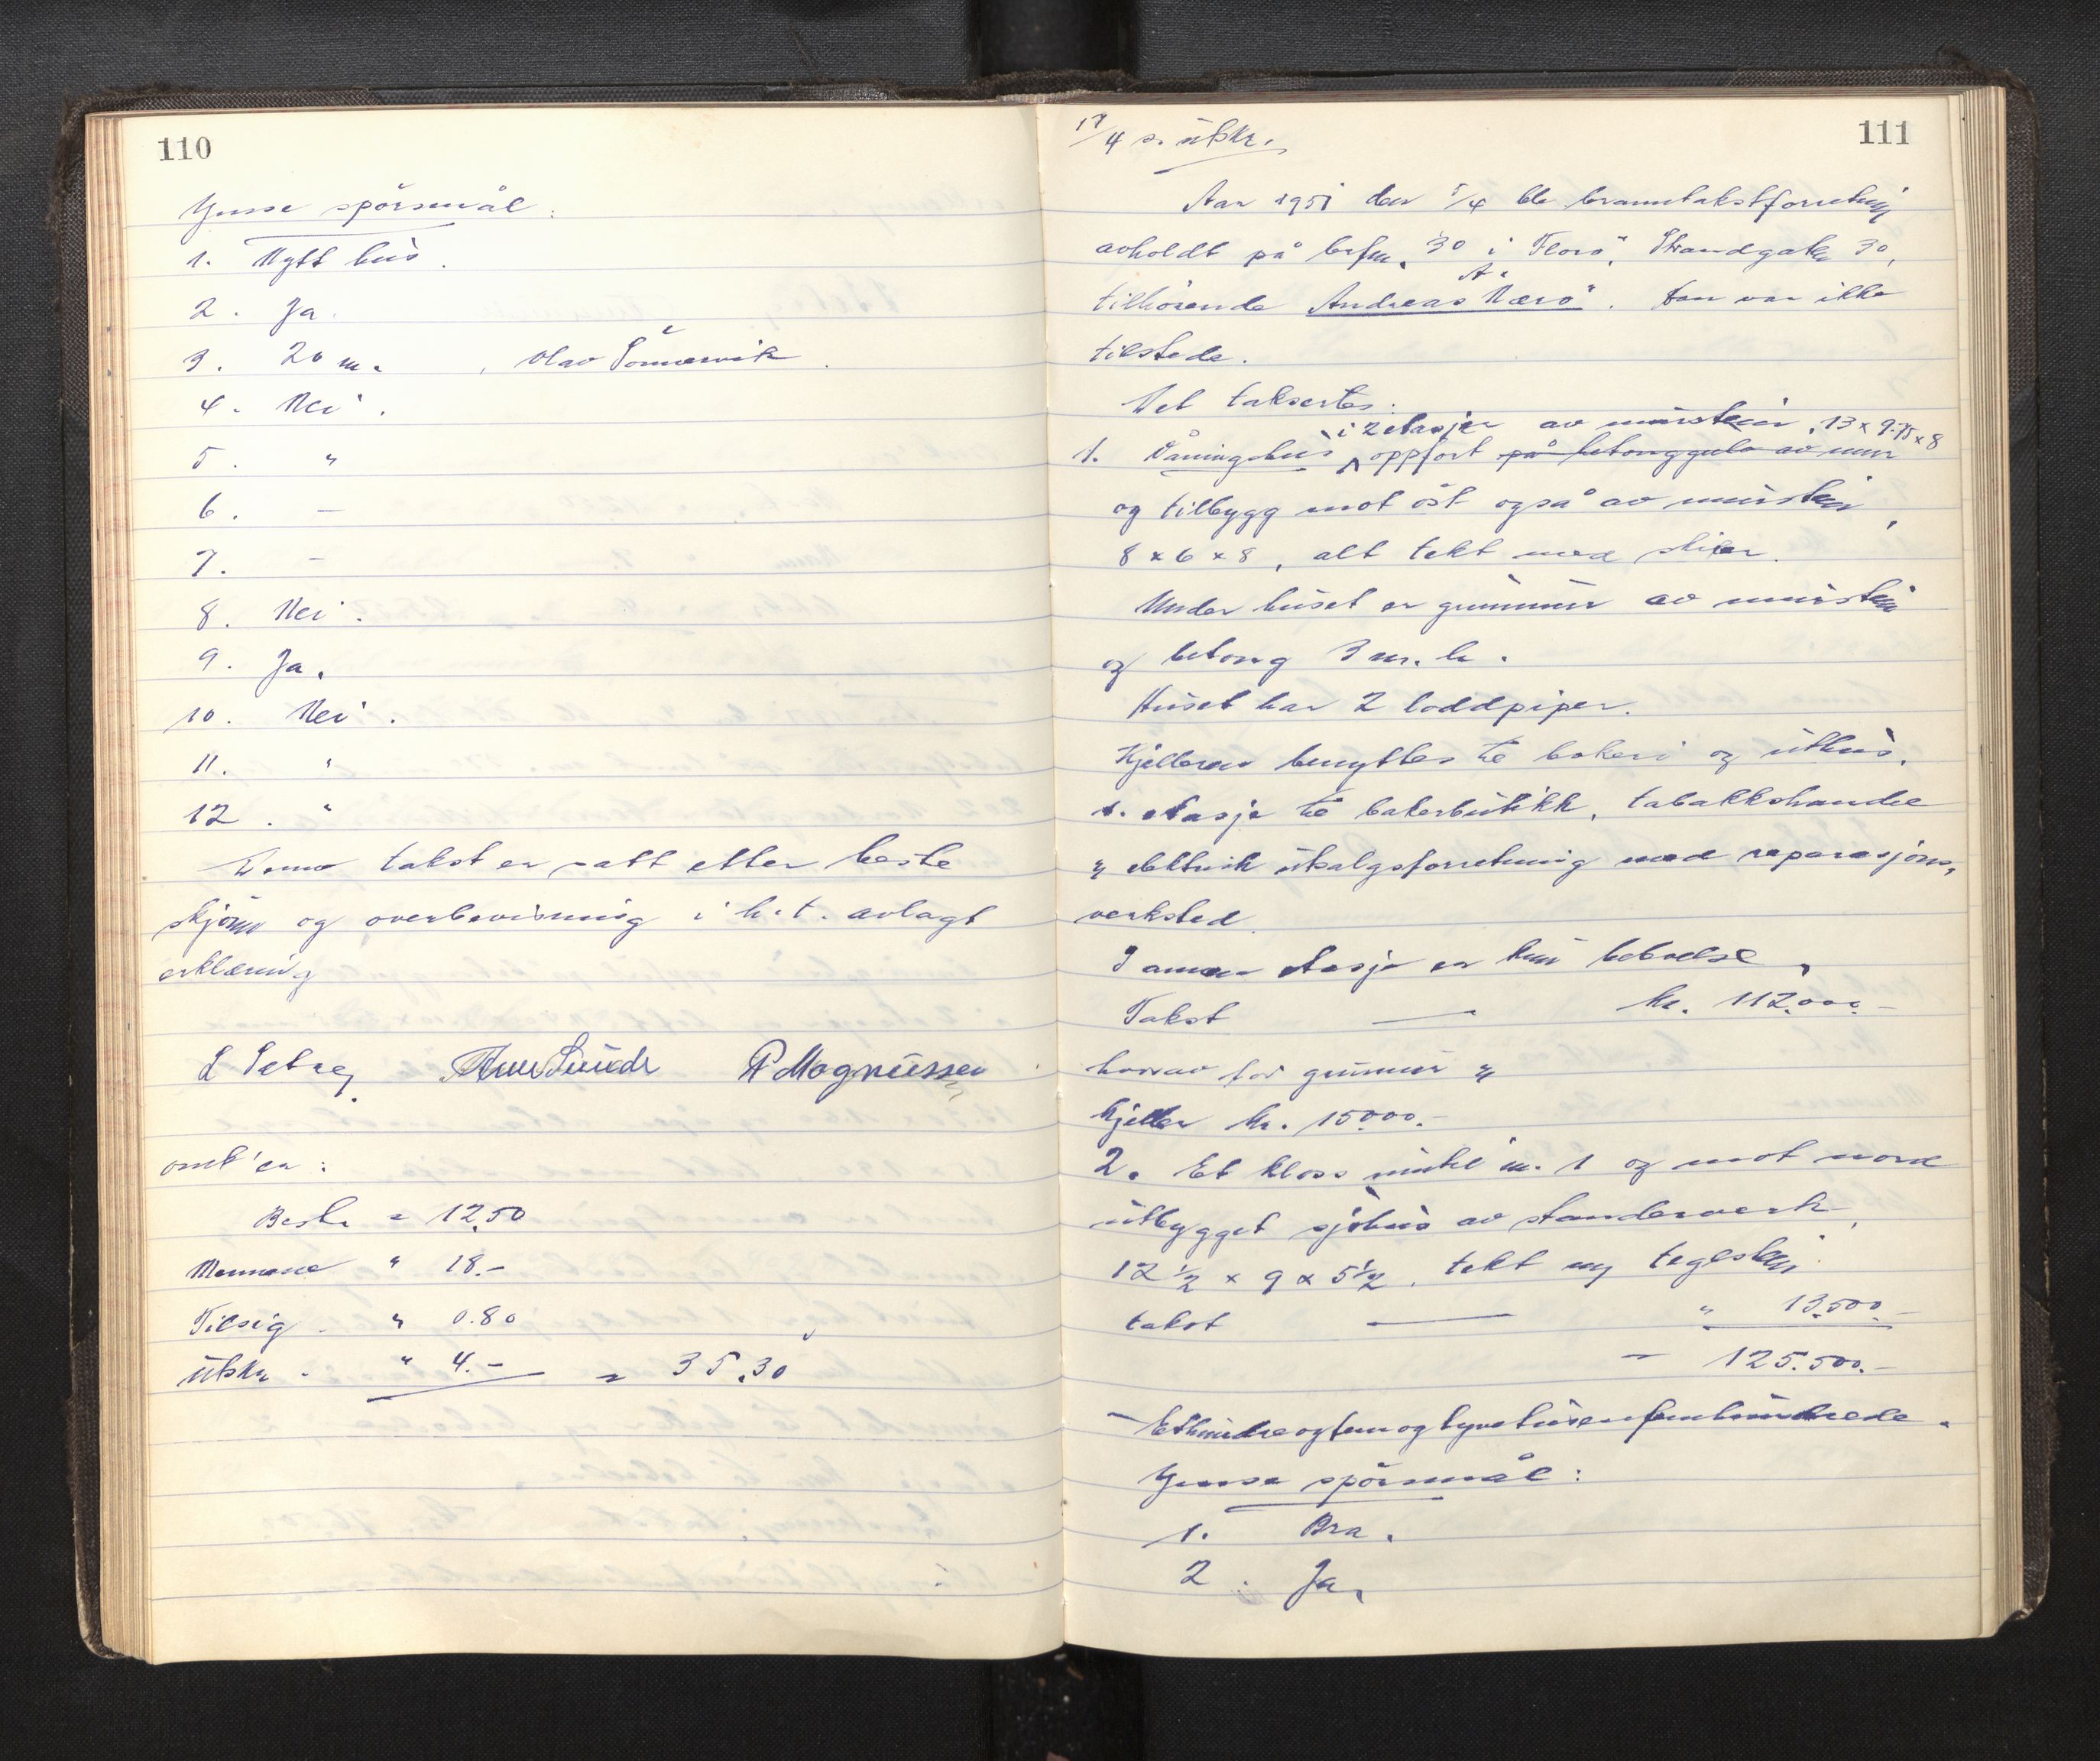 110
Ymse spörsmål:
1. Nytt hus.
2. Ja.
3. 20 m. , Olav Sörnesvik.
4. Nei.
5. "
6. —
7. —
8. Nei.
9. Ja.
10. Nei.
11. "
12. "
Denne takst er satt etter beste
skjönn og overbevisning i h.t. avlagt
erklæring
L Setre, R Magnussen
omk'er:
Best. = 12.50
Mennene " 18.-
Tilsig. " 0.80
Utskr. " 4.- = 35.30
111
17/4 s. utskr.
Aar 1951 den 5/4 ble branntakstforretning
avholdt på brfnr. 30 i Florö, Strandgaten 30,
A.
tilhörende Andreas Nærö. Han var ikke
tilstede.
Det taksertes:
i 2 etasjer av murstein, 13 x 9.75 x 8
1. Våningshus oppfört på betonggulv av mur
og tilbygg mot öst også av murstein,
8 x 6 x 8, alt tekt med skifer.
Under huset er grunnmur av murstein
og betong 3 m. h.
Huset har 2 loddpiper.
Kjelleren benyttes til bakeri og uthus.
1. etasje til bakerbutikk, tabakkshandel
og elektrisk utsalgsforretning med reparasjons-
verksted.
I annen etasje er kun beboelse.
Takst — kr. 112.000.-
hvorav for grunnmur og
kjeller kr. 15000.-
2. Et kloss inntil nr. 1 og mot nord
utbygget sjöhus av standerverk,
12½ x 9 x 5½, tekt m/ teglstein
takst — " 13.500.-
= 125.500.-
- Etthundreogfemogtyvetusenfemhundrede.
Ymse spörsmål:
1. Bra.
2. Ja.